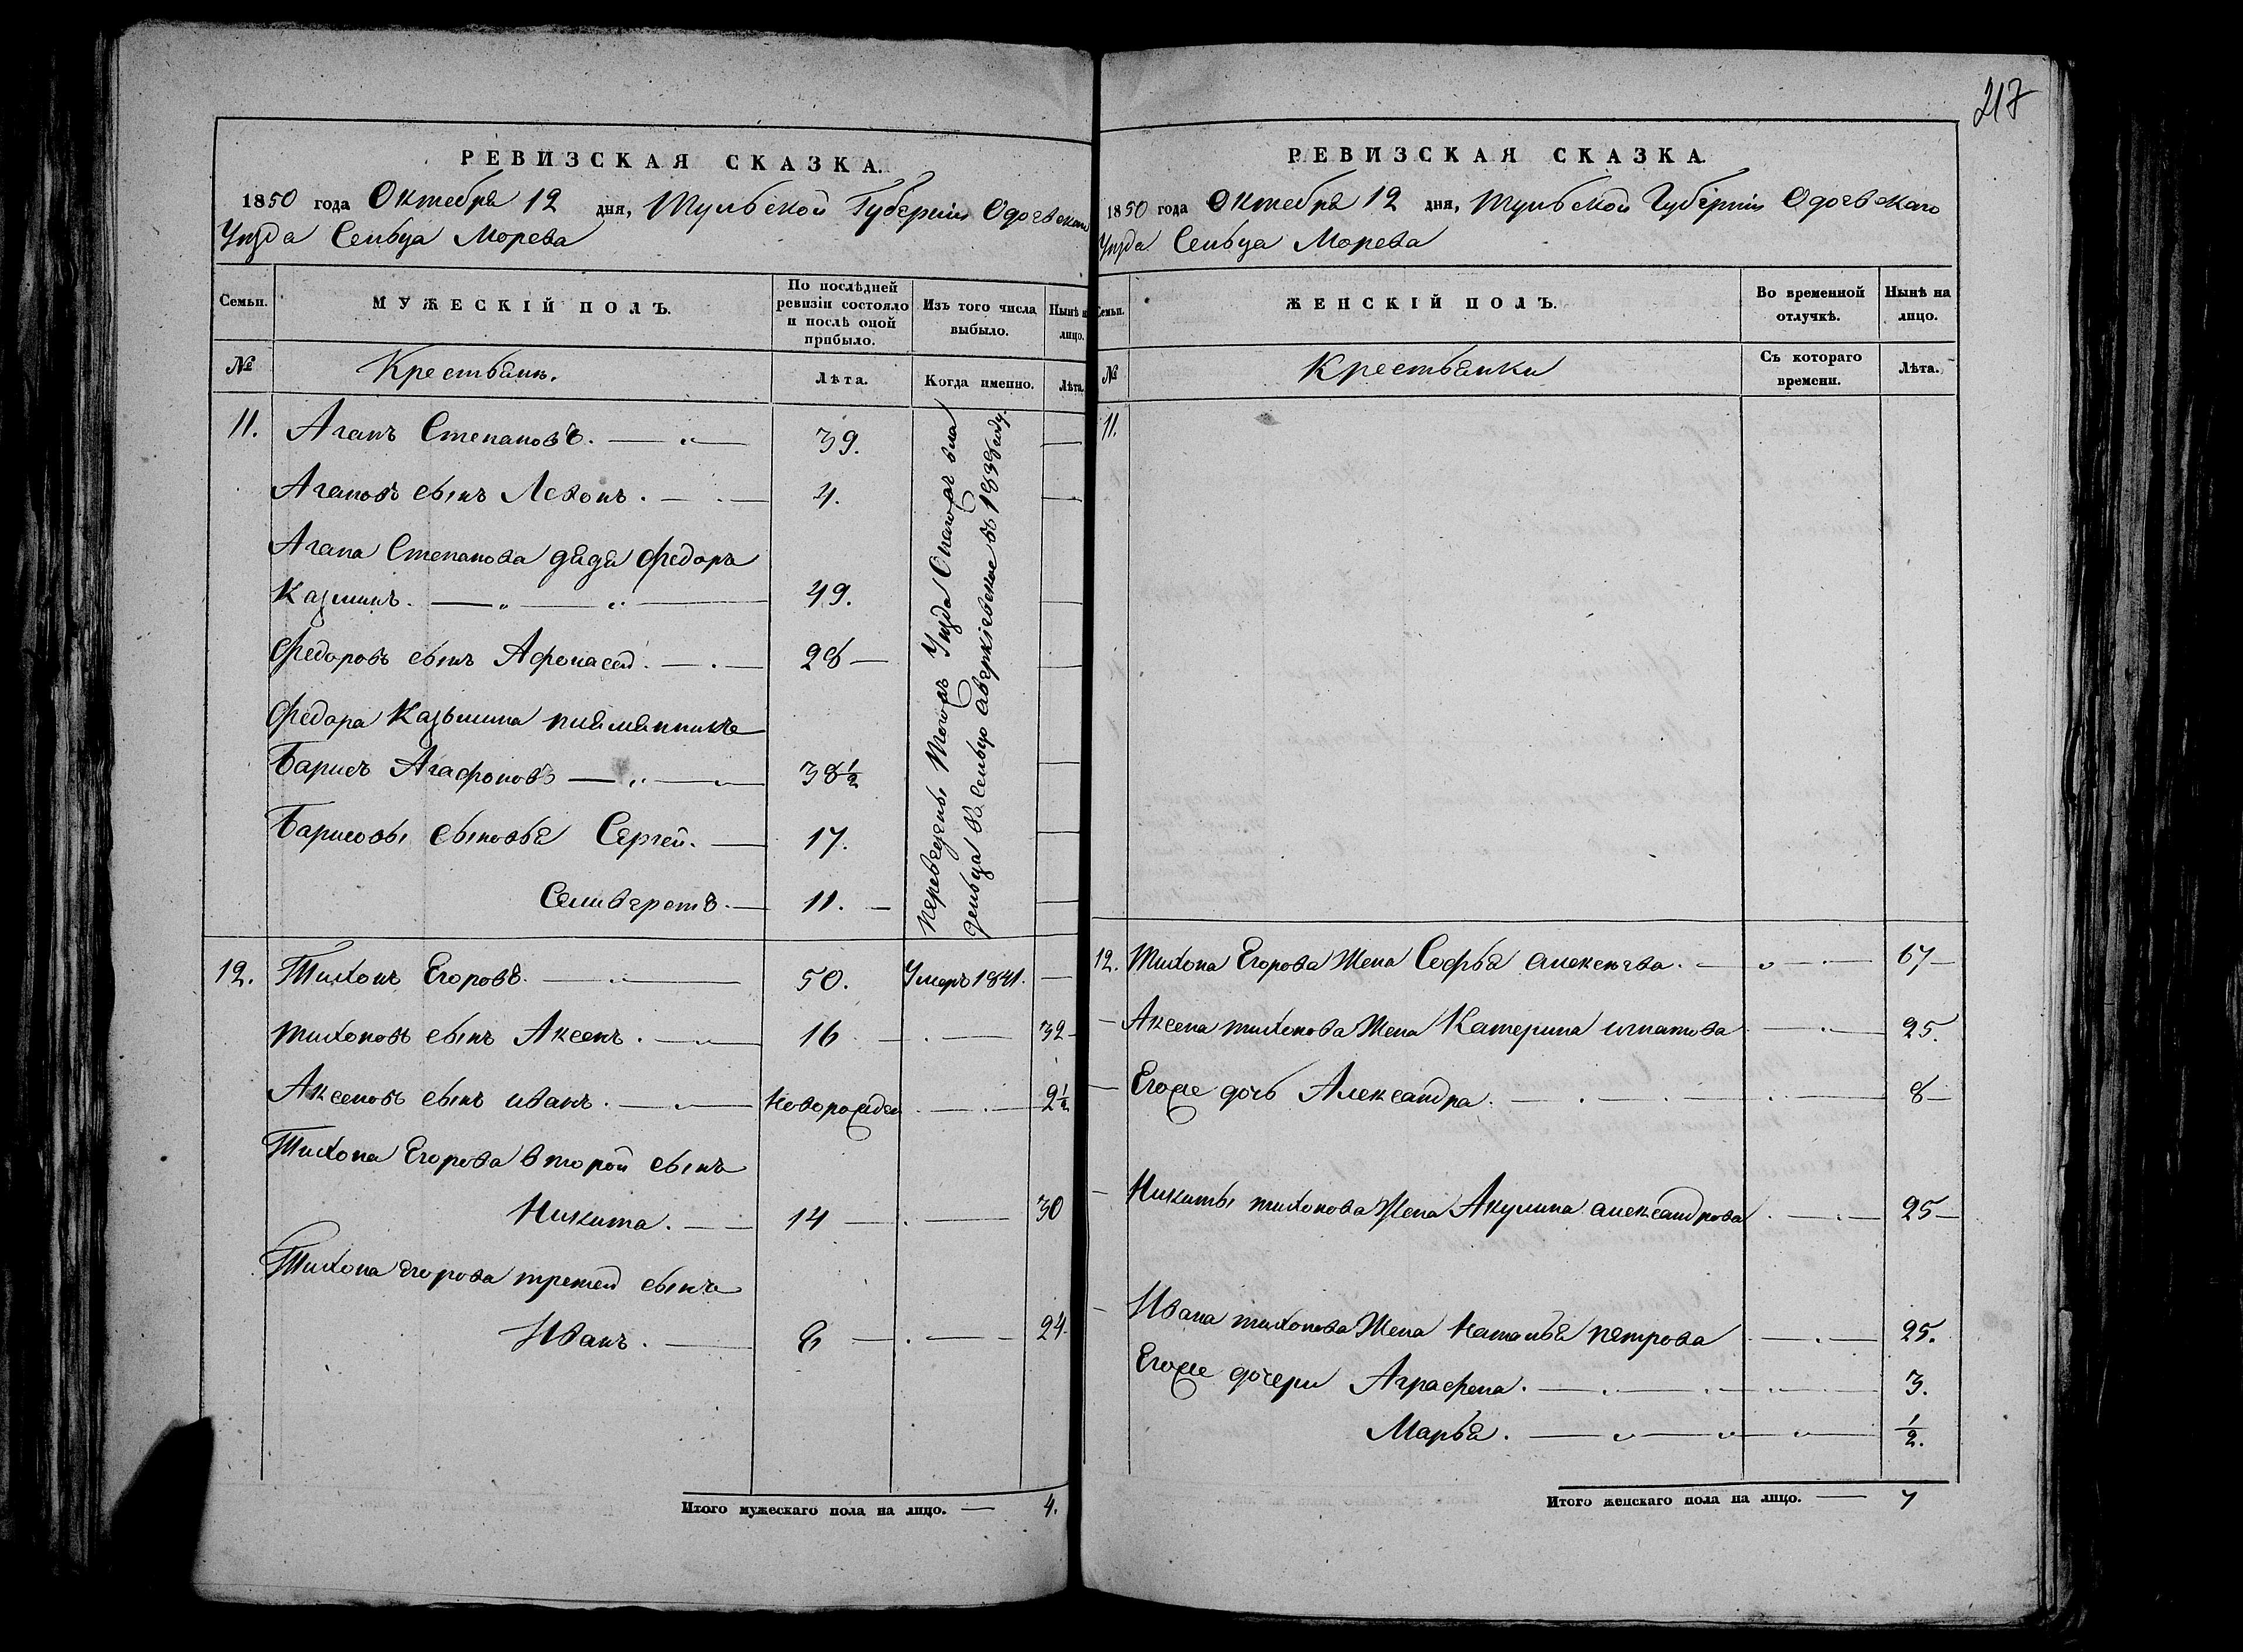 217
РЕВИЗСКАЯ СКАЗКА.
1850 года Октебря 12 дня, Тульской Губернии Одоевскаго
Уезда Сельца Морева
Семьи.
МУЖЕСКІЙ ПОЛЪ.
По послѣдней ревизіи состояло и послѣ оной прибыло.
Изъ того числа выбыло.
Нынѣ на лицо.
№
Крестьянъ.
Лѣта.
Когда именно.
Лѣта.
11. Агапъ Степановъ. 39.
Агаповъ сынъ Левонъ. 4.
Агапа Степанова дядя Федоръ
Казминъ. 49.
Федоровъ сынъ Афонасей. 28
Федора Казьмина пляменникъ
Барисъ Агафоновъ 38½
Барисовы сыновья Сергей. 17.
Селивертъ. 11.
Переведены Тогожъ Уезда Снагожъ
Сельца въ Сельцо Аверкіевское въ 1838 году.
12. Тихонъ Егоровъ. 50. Умеръ 1841.
Тихоновъ сынъ Аксенъ. 16 32
Аксеновъ сынъ иванъ. Новорожден 2½
Тихона Егорова второй сынъ
Никита. 14 30
Тихона Егорова третей сынъ
Иванъ. 8 24.
Итого мужескаго пола на лицо. 4.
РЕВИЗСКАЯ СКАЗКА.
1850 года Октебря 12 дня, Тульской Губерніи Одоевскаго
Уезда Сельца Морева
Семьи.
ЖЕНСКІЙ ПОЛЪ.
Во временной отлучкѣ.
Нынѣ на лицо.
№
Крестьянки
Съ котораго времени.
Лѣта.
11.
12. Тихона Егорова Жена Софья алексеева. 67
Аксена тихонова Жена Катерина игнатова 25.
Егоже дочь Александра. 8
Никиты тихонова Жена Акулина александрова 25
Ивана тихонова Жена Наталья петрова 25.
Егоже дочери Аграфена. 3.
Марья. ½.
Итого женскаго пола на лицо. 7